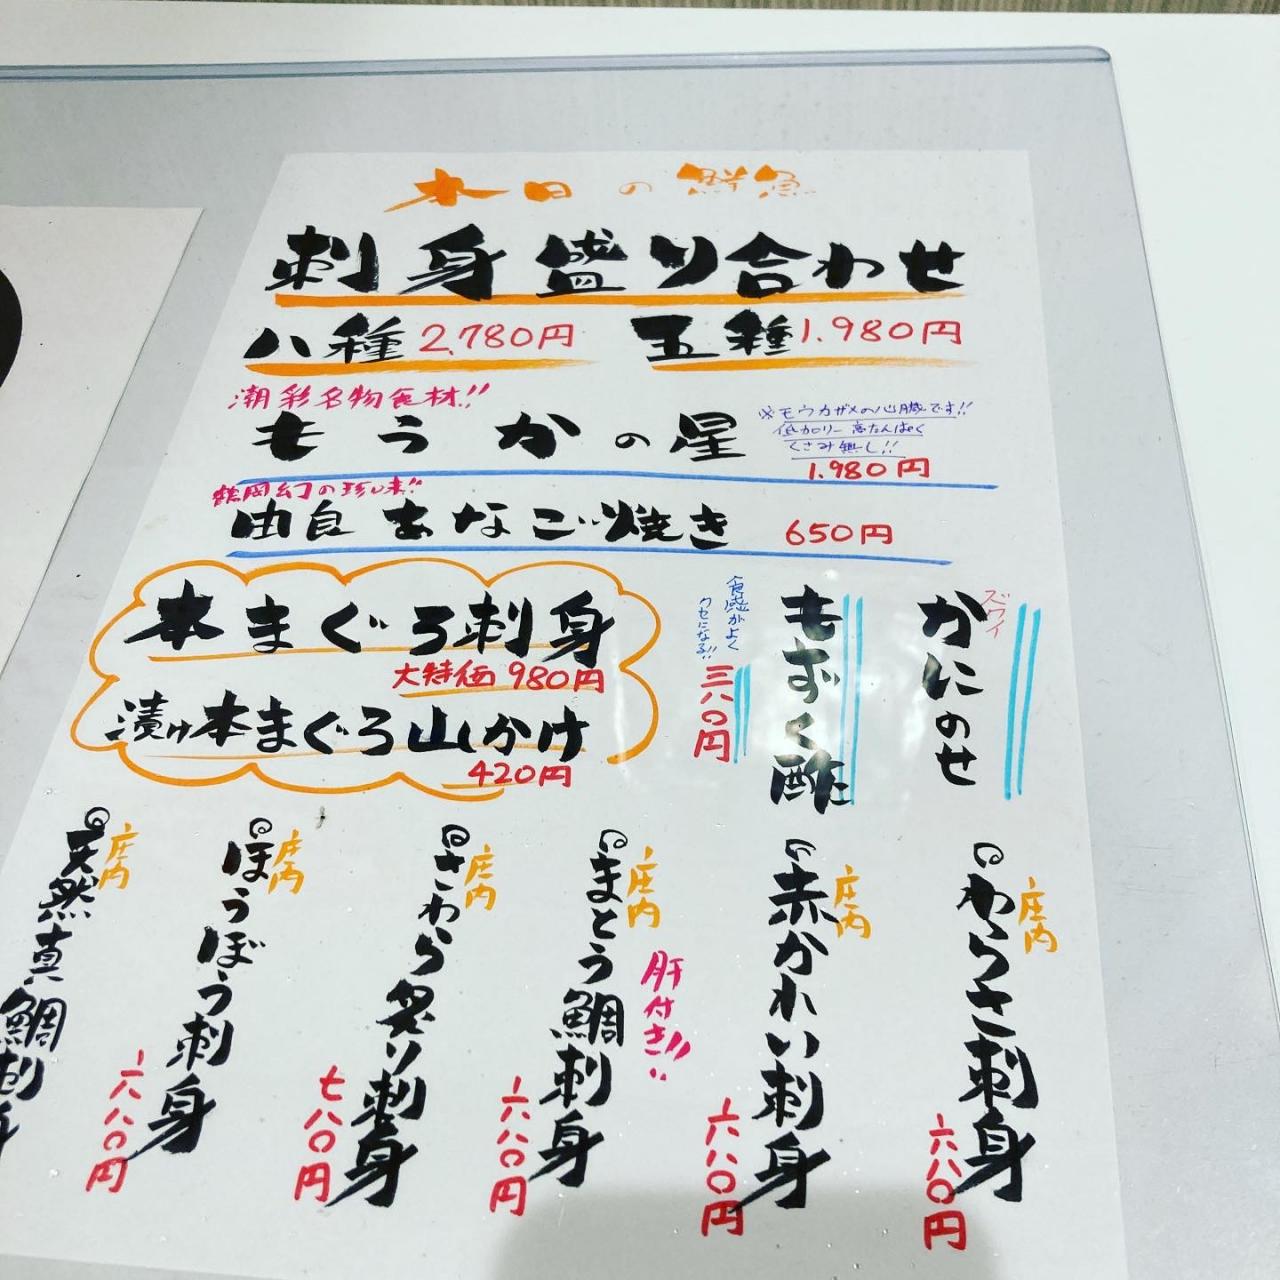 本日の鮮魚
刺身盛り合わせ
八種 2,780円 五種 1.980円
潮彩名物食材!!
もうかの星
※モウカザメの心臓です!!
低カロリー 高たんぱく
くさみ無し!!
1.980円
鶴岡幻の珍味!!
由良あなご焼き 650円
本まぐろ刺身
大特価 980円
漬け本まぐろ山かけ
420円
ズワイ
かにのせ
もずく酢
食感がよく
クセになる!!
三八〇円
庄内
わらさ刺身
六八〇円
庄内
赤かれい刺身
六八〇円
庄内
まとう鯛刺身
肝付き!!
六八〇円
庄内
さわら炙り刺身
七八〇円
庄内
ほうぼう刺身
六八〇円
庄内
天然真鯛刺身